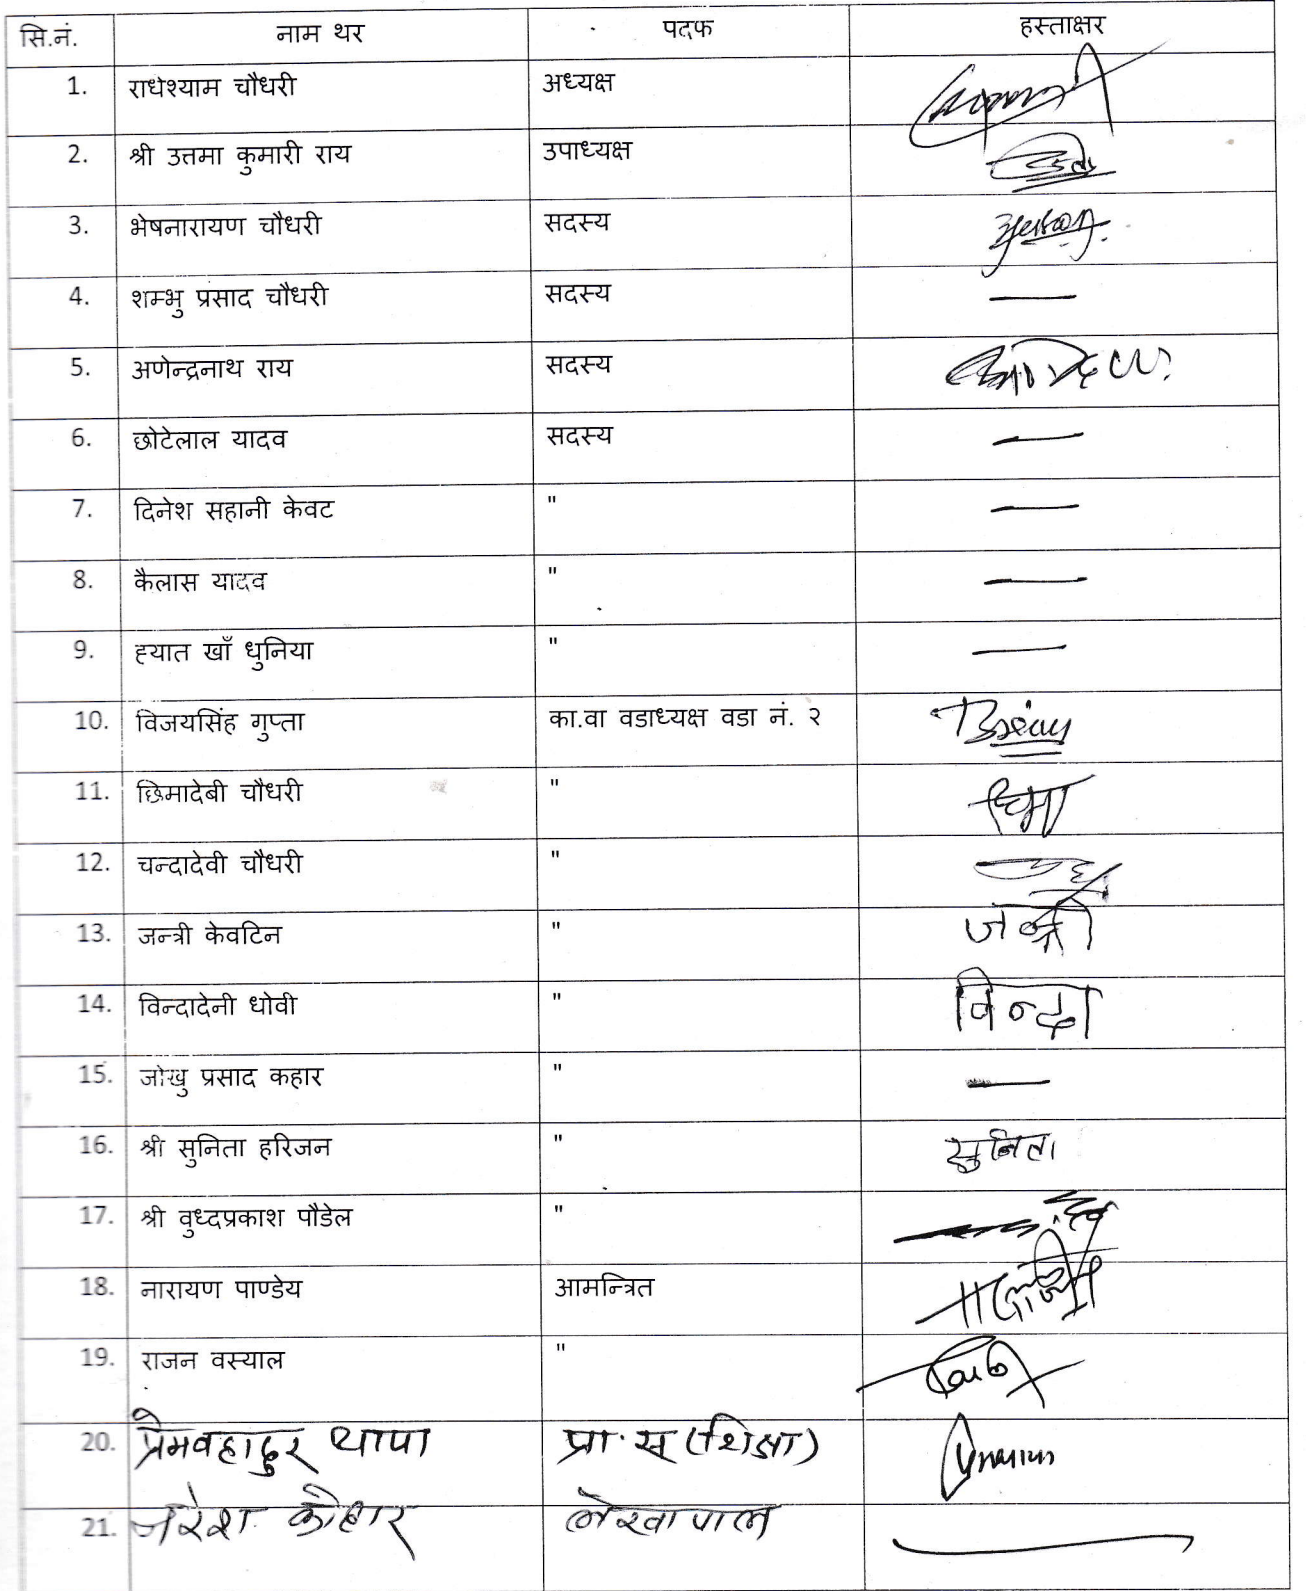 सि.नं. नाम थर पदफ हस्ताक्षर
1. राधेश्याम चौधरी अध्यक्ष
2. श्री उत्तमा कुमारी राय उपाध्यक्ष
3. भेषनारायण चौधरी सदस्य
4. शम्भु प्रसाद चौधरी सदस्य —
5. अणेन्द्रनाथ राय सदस्य
6. छोटेलाल यादव सदस्य —
7. दिनेश सहानी केवट " —
8. कैलास यादव " —
9. ह्यात खाँ धुनिया " —
10. विजयसिंह गुप्ता का.वा वडाध्यक्ष वडा नं. २
11. छिमादेबी चौधरी "
12. चन्दादेवी चौधरी "
13. जन्त्री केवटिन " जन्त्री
14. विन्दादेनी धोवी " विन्दा
15. जोखु प्रसाद कहार " —
16. श्री सुनिता हरिजन " सुनिता
17. श्री वुध्दप्रकाश पौडेल "
18. नारायण पाण्डेय आमन्त्रित
19. राजन वस्याल "
20. प्रेमवहादुर थापा प्रा.स (शिक्षा)
21. नरेश कोहार लेखापाल